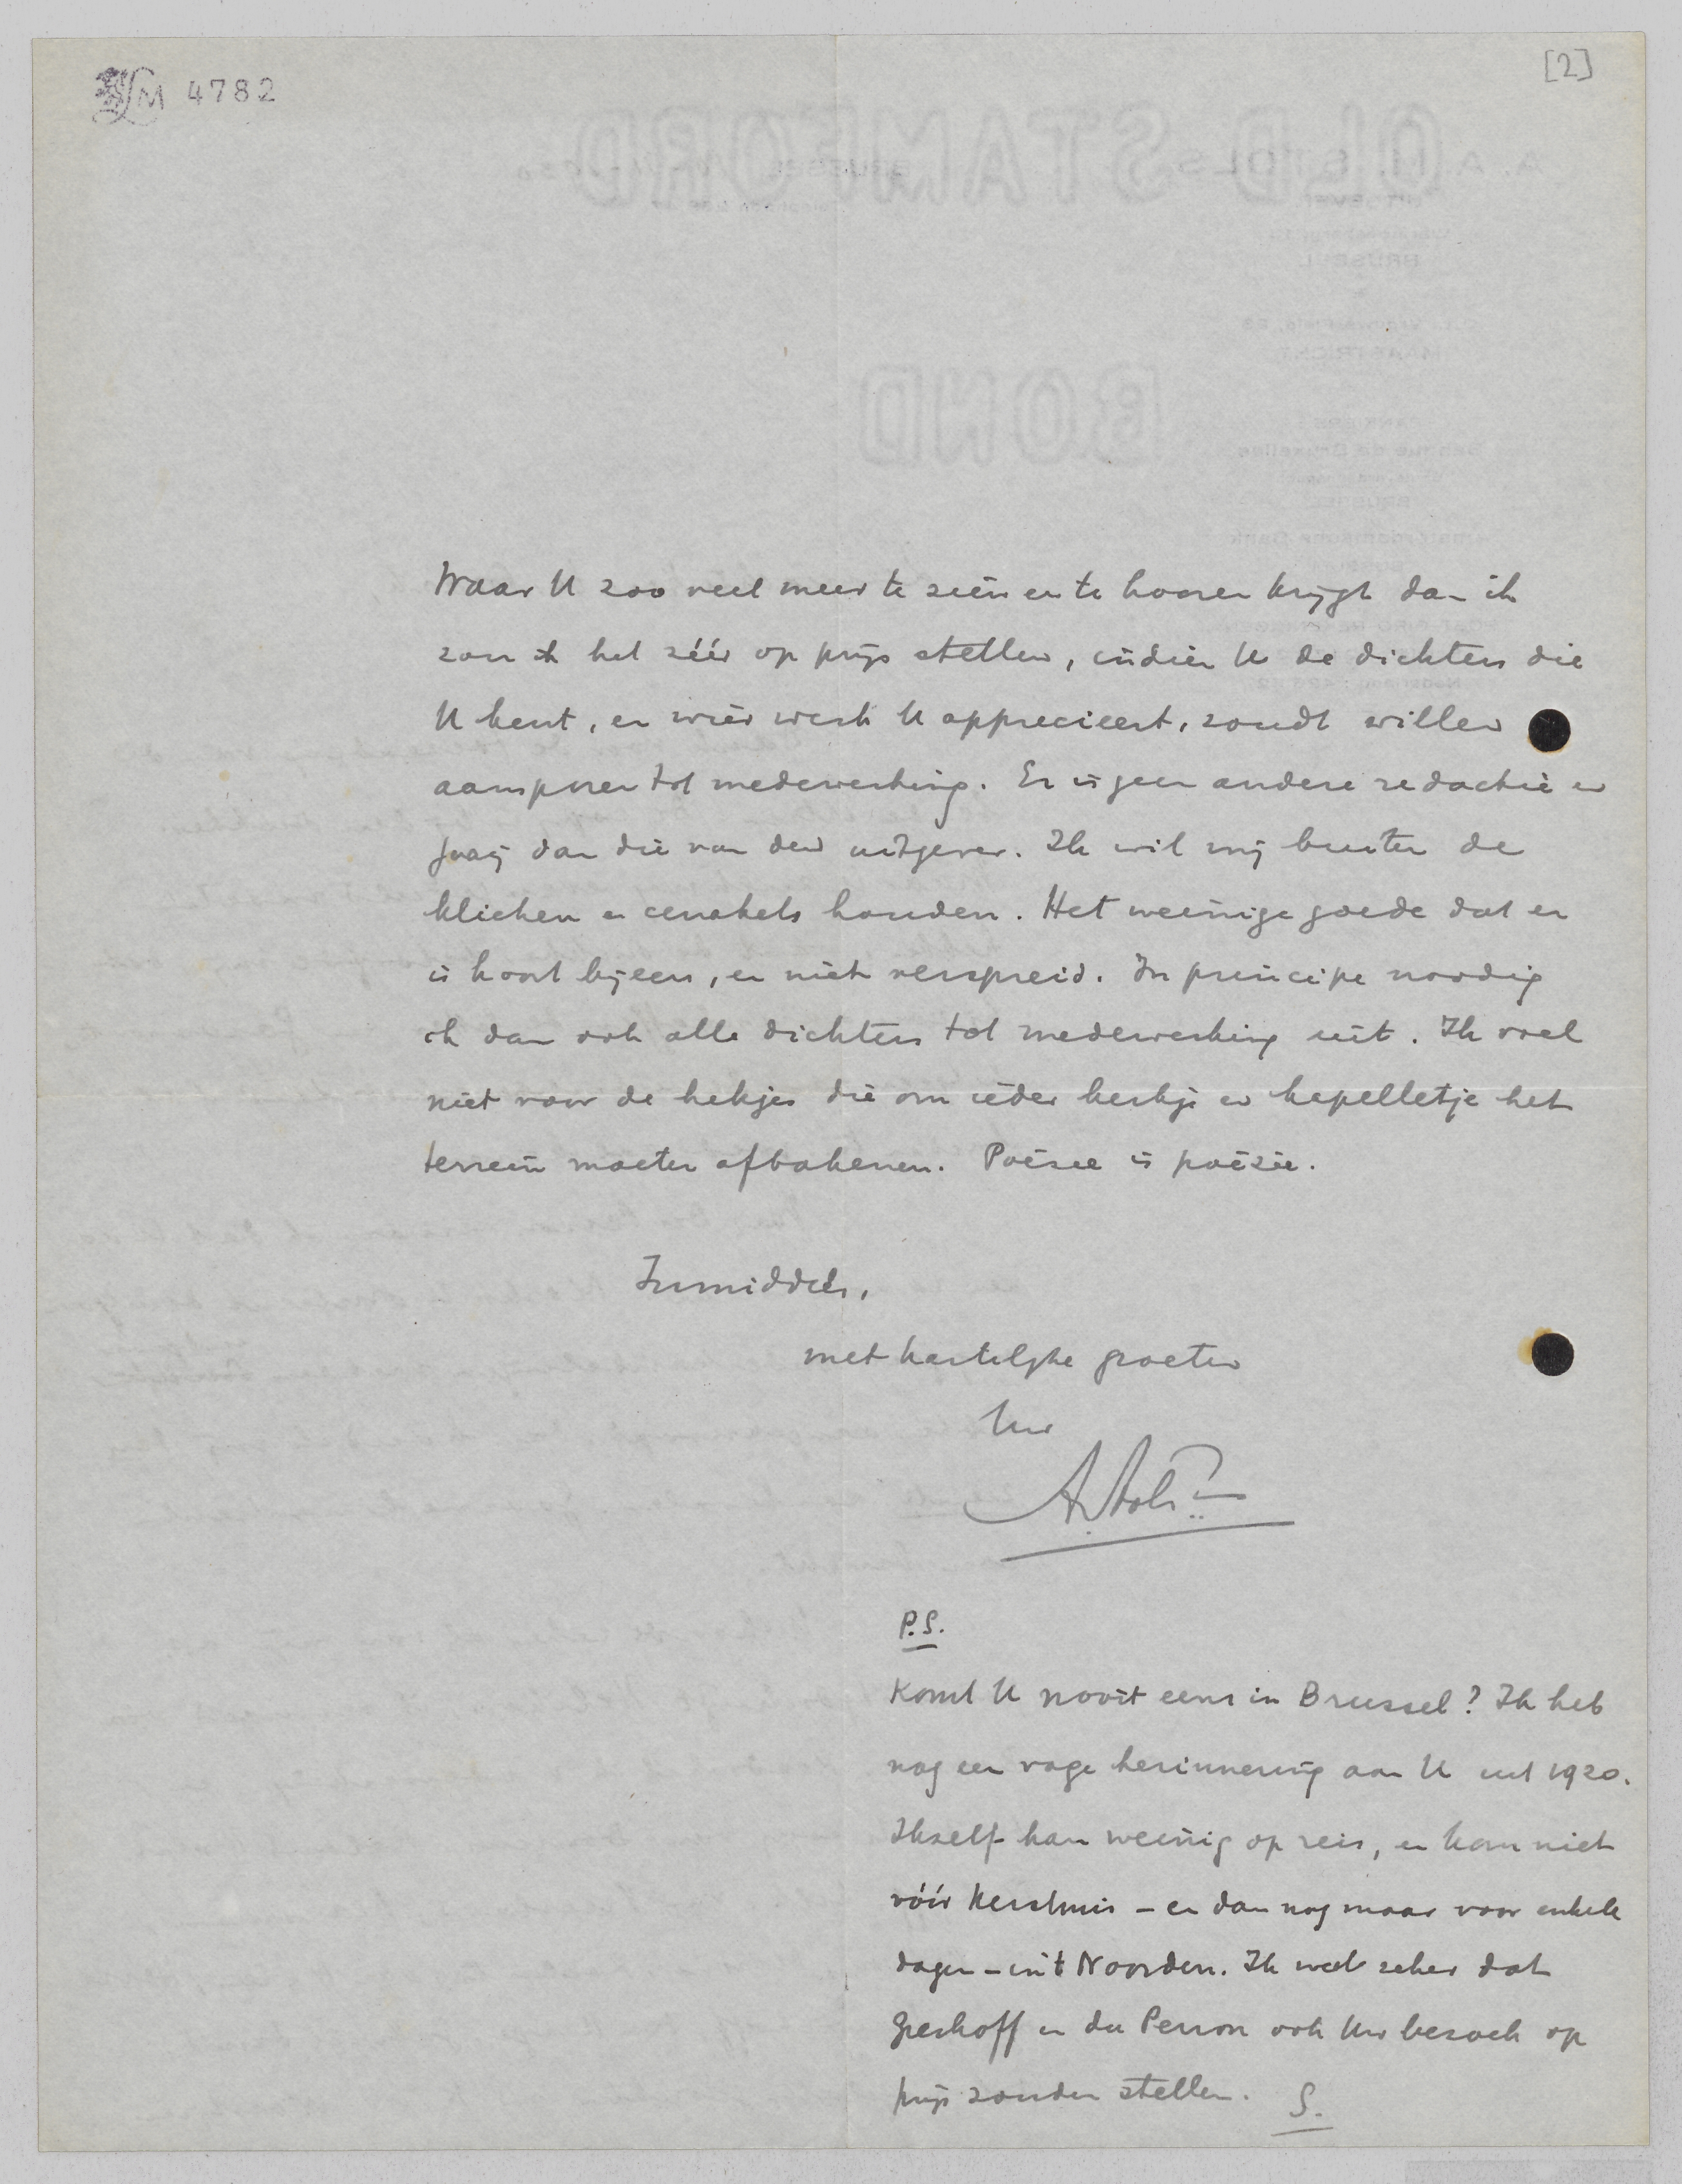 LM 4782
[2]
Waar U zoo veel meer te zien en te hooren krijgt dan ik
zou ik het zéér op prijs stellen, indien U de dichters die
U kent, en wier werk U apprecieert, zoudt willen
aansporen tot medewerking. Er is geen andere redactie en
dan die van den uitgever. Ik wil mij buiten de
klieken en cenakels houden. Het weinige goede dat er
is hoort bijeen, en niet verspreid. In principe noodig
ik dan ook alle dichters tot medewerking uit. Ik voel
niet voor de hekjes die om ieder kerkje en kapelletje het
terrein moeten afbakenen. Poëzie is poëzie.
Inmiddels,
met hartelijke groeten
Uw
AStols
P.S.
Komt U nooit eens in Brussel? Ik heb
nog een vage herinnering aan U uit 1920.
Ikzelf kan weinig op reis, en kom niet
vóór Kerstmis – en dan nog maar voor enkele
dagen – in't Noorden. Ik weet zeker dat
Greshoff en du Perron ook Uw bezoek op
prijs zouden stellen. S.
OLD STAMFORD
BOND